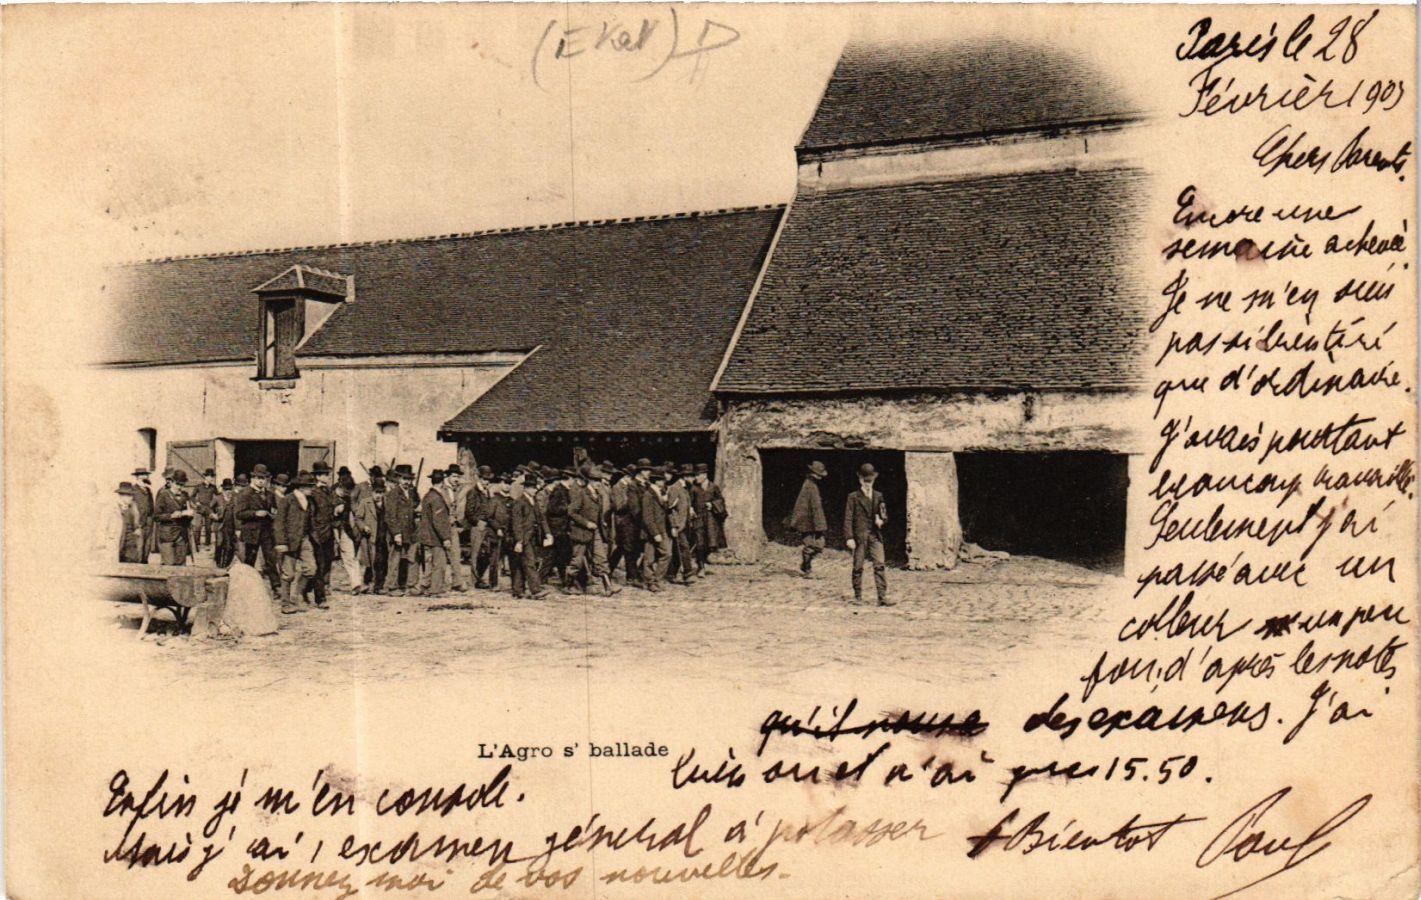 (EKaV)
Paris le 28
Février 1903
Chers Parents.
Encore une
semaine achevée.
Je ne m'en suis
pas si bien tiré
que d'ordinaire.
J'avais pourtant
beaucoup travaillé.
Seulement j'ai
passé avec un
colleur un peu
fou, d'après les notes
qu'il nous a des examens. J'ai
L'Agro s' ballade
et n'ai que 15.50.
Enfin je m'en console.
Mais j'ai 1 examen général à potasser
A Bientot Paul
Donnez moi de vos nouvelles.